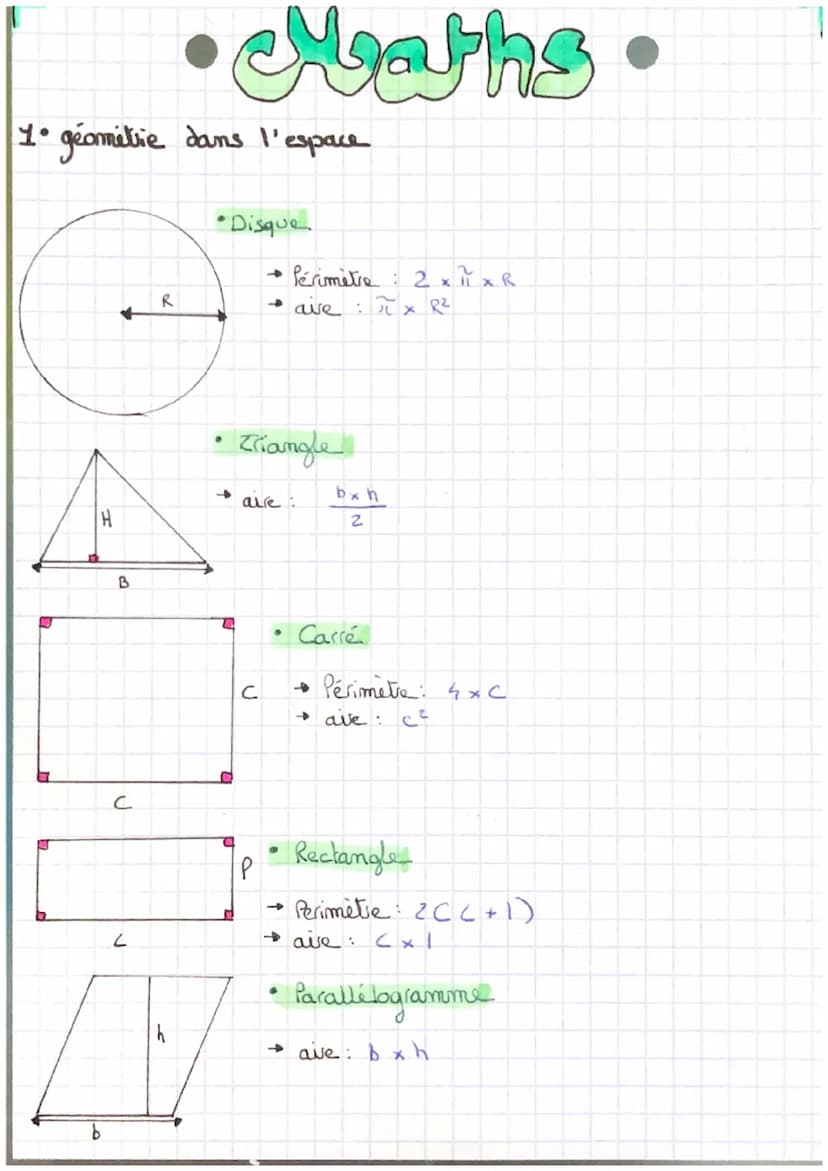 Maths
1° géométrie dans l'espace
• Disque
→ Périmètre : 2 × π × R
→ aire : π × R²
R
• Triangle
→ aire : b × h / 2
H
B
• Carré
C
→ Périmètre : 4 × C
→ aire : c²
C
• Rectangle
→ Perimètre : 2(L + l)
→ aire : L × l
L
• Parallélogramme
h
→ aire : b × h
b